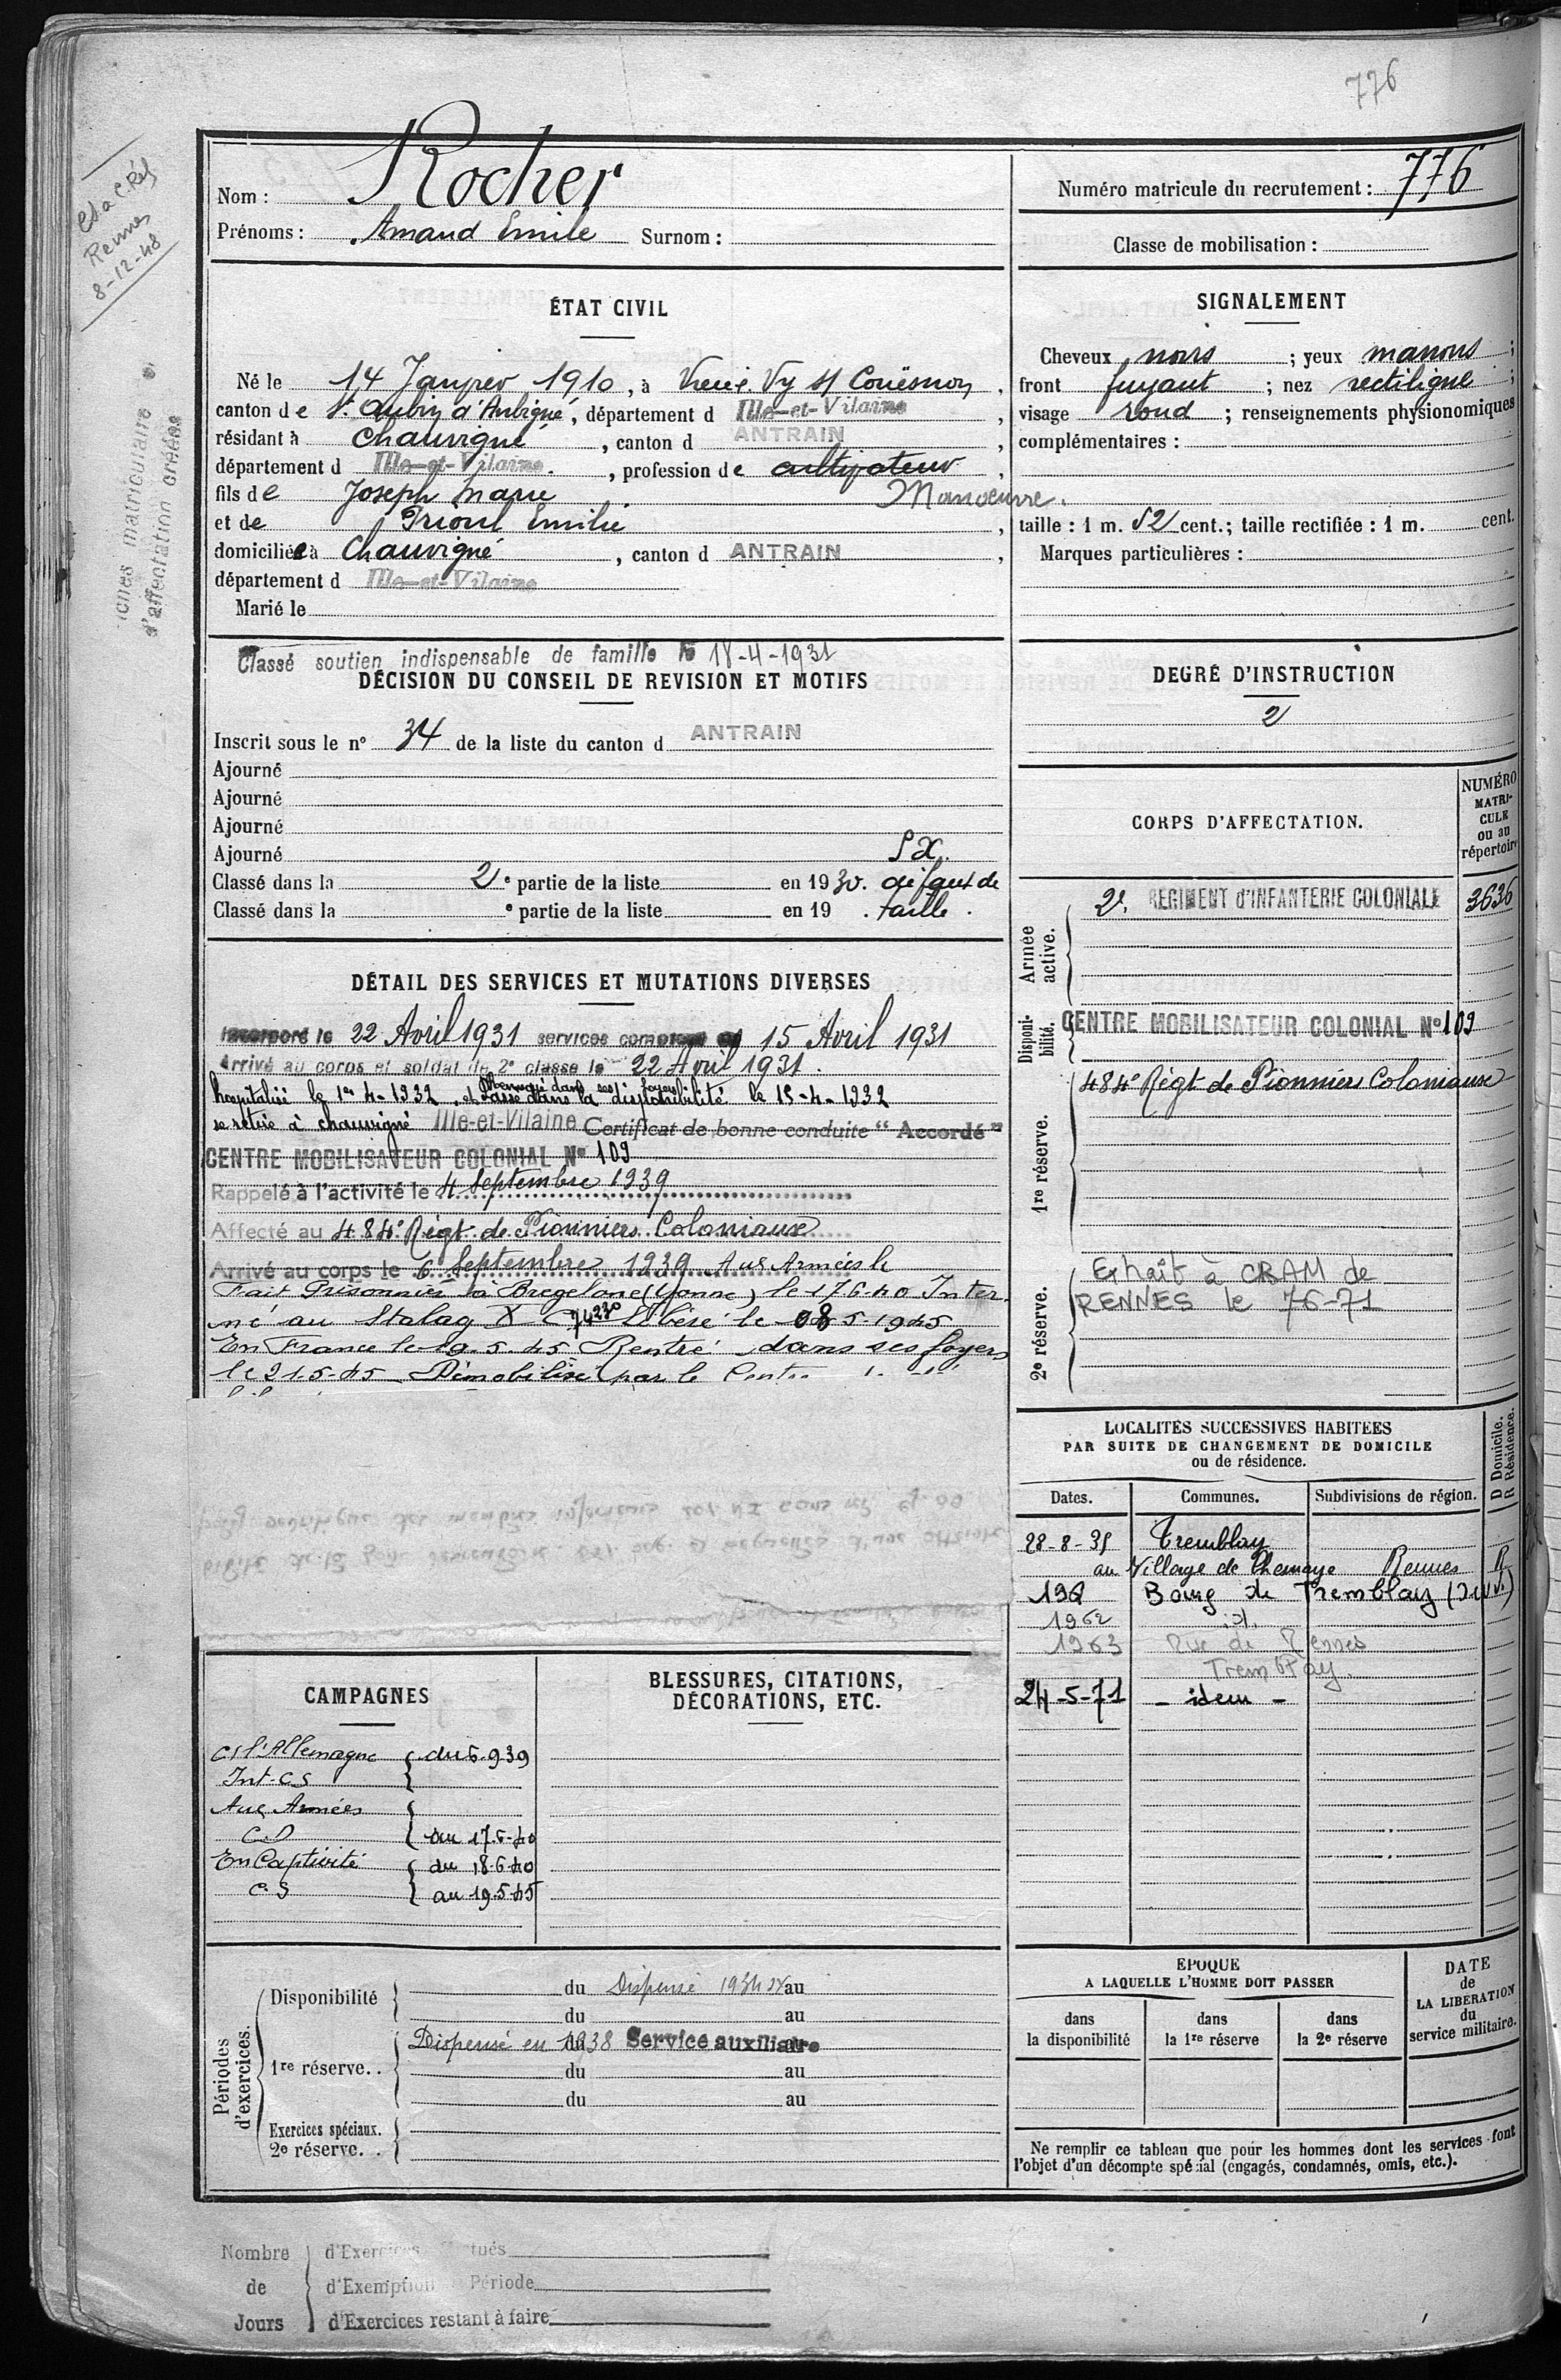 776
et a C.Rés
Rennes
8-12-48
iches matriculaire e
d'affectation créées
Nom : Rocher
Prénoms : Amand Emile Surnom :
Numéro matricule du recrutement : 776
Classe de mobilisation :
ÉTAT CIVIL
Né le 14 Janvier 1910, à Vieux Vy s/ Couësnon,
canton de St Aubin d'Aubigné, département d Ille-et-Vilaine,
résidant à Chauvigné, canton d ANTRAIN,
département d Ille-et-Vilaine, profession de cultivateur
Manoeuvre.
fils de Joseph Marie
et de Prioul Emilie,
domiciliée à Chauvigné, canton d ANTRAIN,
département d Ille-et-Vilaine
Marié le
SIGNALEMENT
Cheveux noirs ; yeux marrons ;
front fuyant ; nez rectiligne ;
visage rond ; renseignements physionomiques
complémentaires :
taille : 1 m. 52 cent.; taille rectifiée : 1 m. cent.
Marques particulières :
Classé soutien indispensable de famille le 18-4-1931
DÉCISION DU CONSEIL DE REVISION ET MOTIFS
Inscrit sous le n° 34 de la liste du canton d ANTRAIN
Ajourné
Ajourné
Ajourné
Ajourné
SX.
Classé dans la 2e partie de la liste en 1930. défaut de
Classé dans la e partie de la liste en 19 . taille.
DEGRÉ D'INSTRUCTION
2
DÉTAIL DES SERVICES ET MUTATIONS DIVERSES
Incorporé le 22 Avril 1931 services comptent du 15 Avril 1931
Arrivé au corps et soldat de 2e classe le 22 Avril 1931.
Renvoyé dans ses foyers
hospitalisé le 1er 4-1932. et passé dans la disponibilité le 15-4-1932
se retire à chauvigné Ille-et-Vilaine Certificat de bonne conduite "Accordé"
CENTRE MOBILISATEUR COLONIAL N° 109
Rappelé à l'activité le 4 Septembre 1939
Affecté au 484e Régt de Pionniers Coloniaux
Arrivé au corps le 6 Septembre 1939 Aux Armées le
Fait Prisonnier à (Yonne) le 17 6-40 Inter-
né au Stalag X C 74230 Libéré le 08 5-1945
En France le 19.5.45 Rentré dans ses foyers
le 21-5-45 Démobilisé par le
CORPS D'AFFECTATION.
NUMÉRO
MATRI-
CULE
ou au
répertoire
Armée
active.
2e REGIMENT d'INFANTERIE COLONIALE 3636
Disponi-
bilité.
CENTRE MOBILISATEUR COLONIAL N° 109
1re réserve.
484e Régt de Pionniers Coloniaux
2e réserve.
Extrait à CRAM de
RENNES le 7-6-71
LOCALITÉS SUCCESSIVES HABITÉES
PAR SUITE DE CHANGEMENT DE DOMICILE
ou de résidence.
D Domicile.
R Résidence.
Dates. Communes. Subdivisions de région.
28-8-35 Tremblay
au Village de Rennes R
196 Bourg de Tremblay
1962 id.
1963 Rue de Rennes
Tremblay.
24-5-71 - idem -
CAMPAGNES
C/ l'Allemagne du 6.9.39
Int. C.S
Aux Armées
C.D au 17.6.40
En Captivité du 18.6.40
C.S au 19.5.45
BLESSURES, CITATIONS,
DÉCORATIONS, ETC.
Périodes
d'exercices.
Disponibilité du Dispensé 1934 au
du au
1re réserve.. Dispensé en 1938 Service auxiliaire
du au
du au
Exercices spéciaux.
2e réserve. .
ÉPOQUE
A LAQUELLE L'HOMME DOIT PASSER
dans
la disponibilité
dans
la 1re réserve
dans
la 2e réserve
DATE
de
LA LIBÉRATION
du
service militaire.
Ne remplir ce tableau que pour les hommes dont les services font
l'objet d'un décompte spécial (engagés, condamnés, omis, etc.).
Nombre
de
Jours
d'Exercices
d'Exemption Période
d'Exercices restant à faire